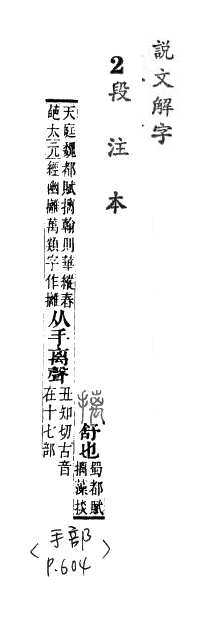 説文解字
2段注本
摛舒也
蜀都賦
摛藻掞
天庭魏都賦摛翰則華縱春
葩太元經幽攡萬類字作攡
从手离聲
丑知切古音
在十七部
<手部
P.604>